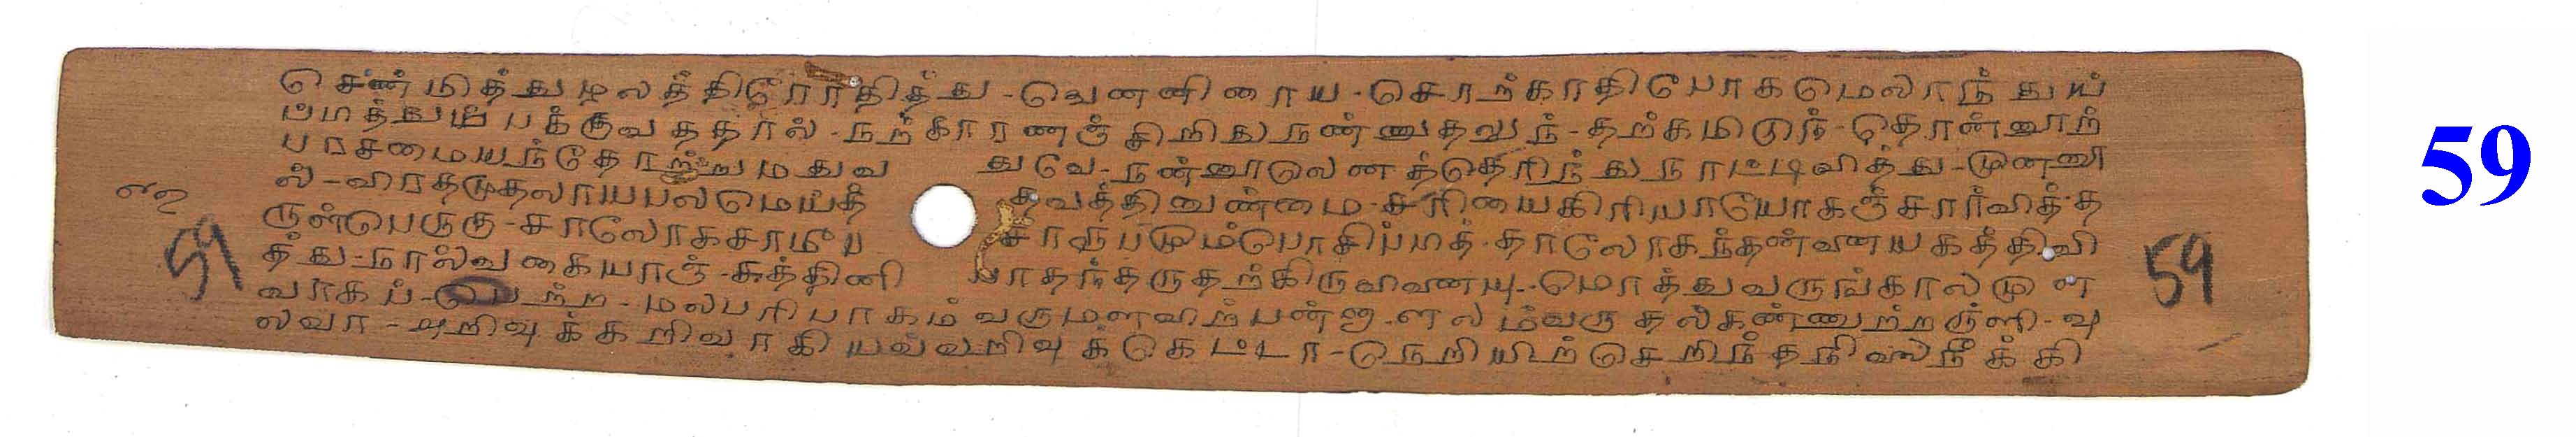 சென்மித்துழலத்திரோதித்து-வெனனிரைய-சொற்காதிபோகமெலாந்துய்
ப்பத்து பக்குவததால்-நற்காரணஞ்சிறிது நண்ணுதலுந்-தற்கமிடுந்-தொன்னூற்
பரசமையந்தோற்றுமதுவ துவே-நன்னூலெனத்தெரிந்து நாட்டிவித்து-முனனூ
ல்-விரதமுதலாயபலமெய்த் தவத்தினுண்மை-சரியைகிரியாயோகஞ்சார்வித்த
ருள்பெருகு-சாலோகசாமீப சாரூபமும்பொசிப்பத்-தாலோகந்தன்னையகத்திவி
த்து-நால்வகையாஞ்-சத்தினி பாதந்தருதற்கிருவினையு-மொத்துவருங்காலமுள
வாகப்-பெற்ற-மலபரிபாகம்வருமளவிற்பன்னா-ளலம்வருதல்கண்ணுற்றருளி-வு
லவா-வறிவுக்கறிவாகியவ்வறிவுக்கெட்டா-நெறியிற்செறிந்தநிலைநீக்கி
௫௯
59
59
59